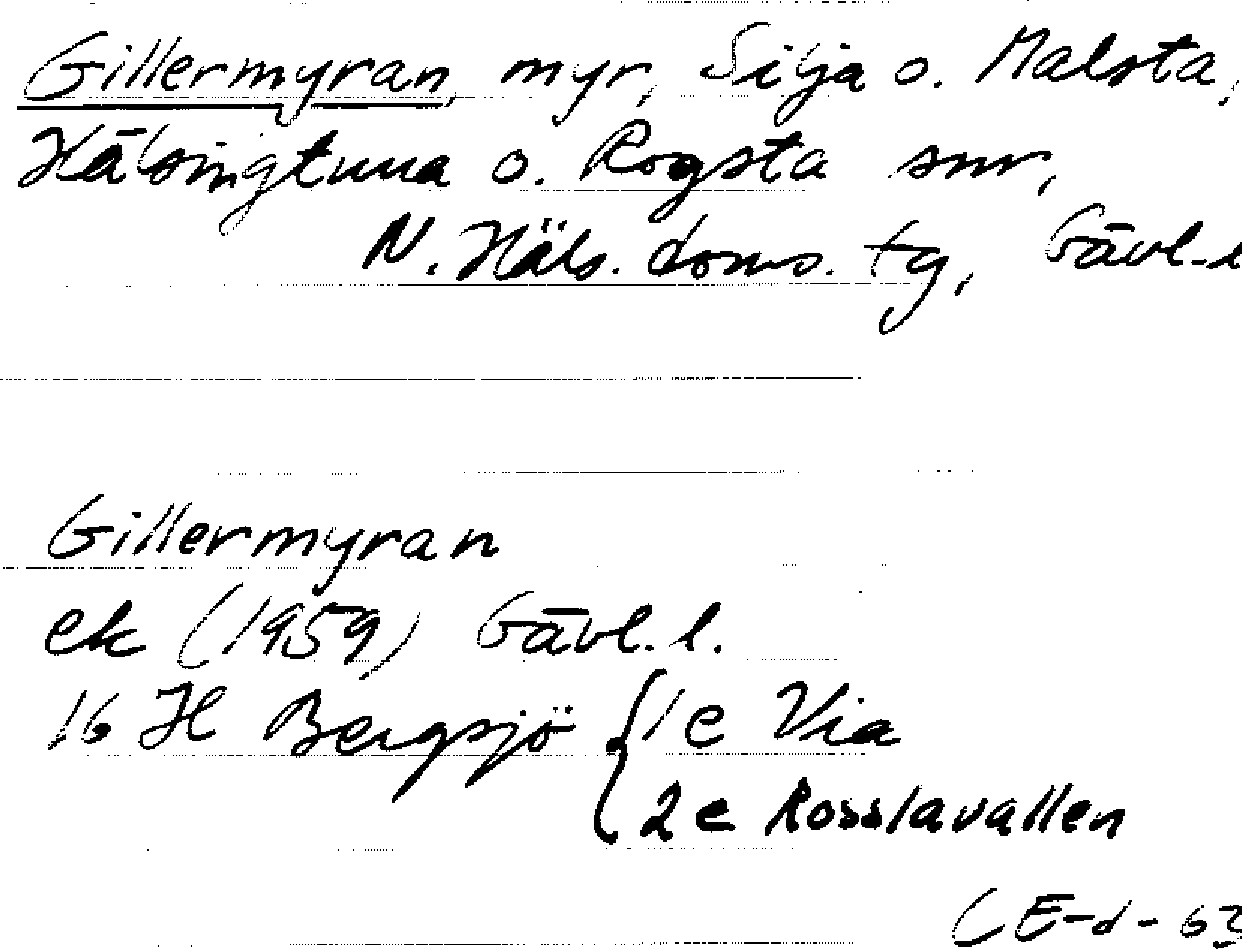 Gillermyran, myr, Silja o. Malsta,
Hälsingtuna o. Rogsta snr,
N. Häls. doms. tg, Gävl. l
Gillermyran
ek (1959) Gävl. l.
16 H Bergsjö { 1e Via
2e Rosslavallen
CE-d-63